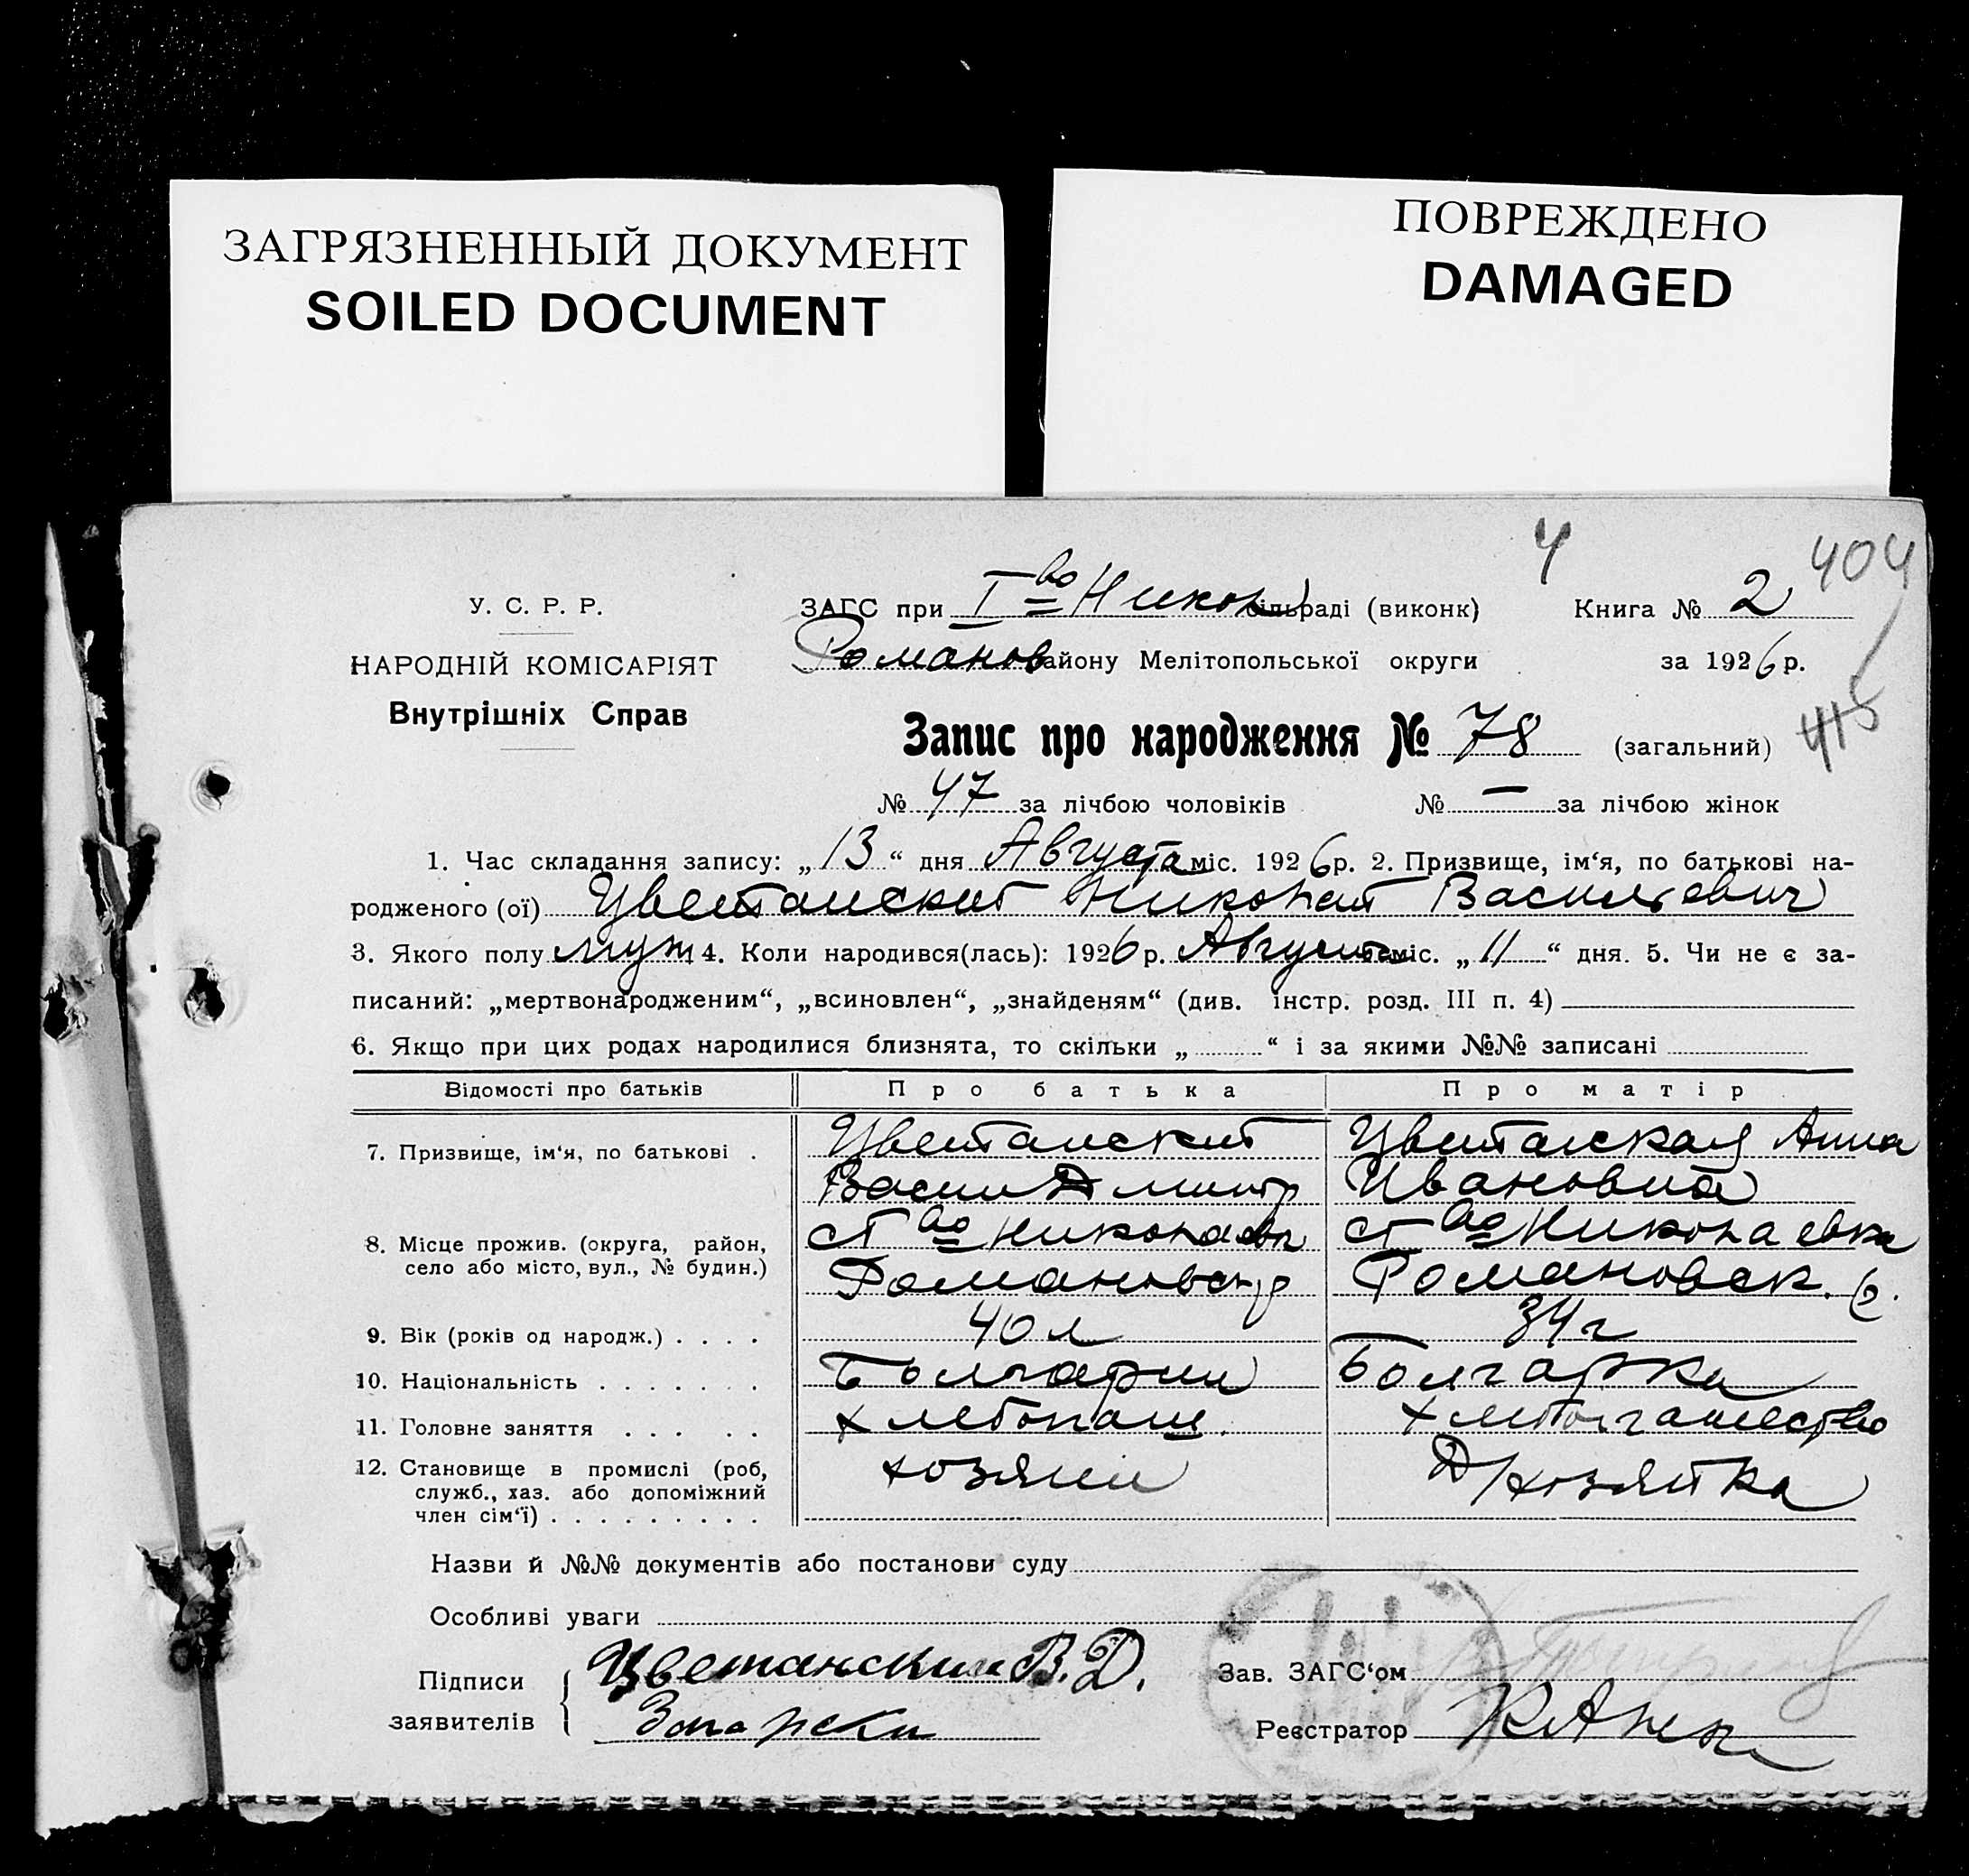 ЗАГРЯЗНЕННЫЙ ДОКУМЕНТ
SOILED DOCUMENT
ПОВРЕЖДЕНО
DAMAGED
4
404
415
У. С. Р. Р.
НАРОДНІЙ КОМІСАРІЯТ
Внутрішніх Справ
ЗАГС при І во Никол сільраді (виконк) Книга № 2
Романов району Мелітопольської округи за 1926 р.
Запис про народження № 78 (загальний)
№ 47 за лічбою чоловіків № — за лічбою жінок
1. Час складання запису: „13“ дня Августа міс. 1926 р. 2. Призвище, ім'я, по батькові на-
родженого (ої) Цветанский Николай Васильевич
3. Якого полу муж 4. Коли народився(лась): 1926 р. Августа міс. „11“ дня. 5. Чи не є за-
писаний: „мертвонародженим“, „всиновлен“, „знайденям“ (див. інстр. розд. III п. 4)
6. Якщо при цих родах народилися близнята, то скільки „ “ і за якими №№ записані
Відомості про батьків Про батька Про матір
7. Призвище, ім'я, по батькові . Цветанский Цветанская Анна
Васил Дмитр Ивановна
8. Місце прожив. (округа, район, во Николаевк во Николаевка
село або місто, вул., № будин.) Романовск р Романовск. р.
9. Вік (років од народж.) . . . . 40 л 34 г
10. Національність . . . . . . . Болгарин Болгарка
11. Головне заняття . . . . . хлебопаш. хлебопашество
12. Становище в промислі (роб, хозяин Д/хозяйка
служб., хаз. або допоміжний
член сім'ї) . . . . . . . . .
Назви й №№ документів або постанови суду
Особливі уваги
Підписи Цветанский В. Д. Зав. ЗАГС'ом
заявителів Реєстратор